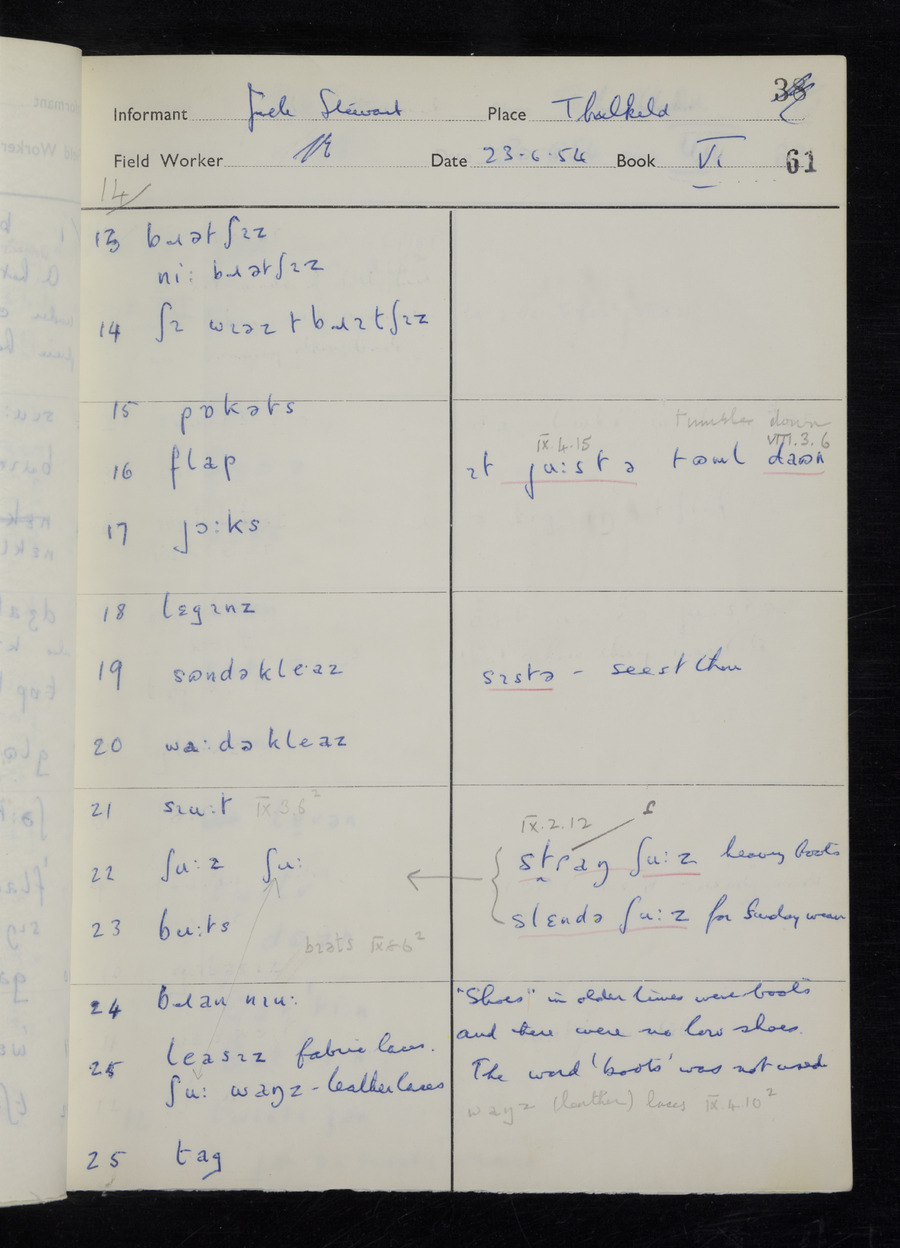 38
Informant Jack Stewart Place Threlkeld
Field Worker Date 23.6.54 Book VI 61
14/
13 bɹɪətʃɪz
ni: bɹɪətʃɪz
14 ʃɪ wɪəz t bɹɪtʃɪz
15 pɒkəts
16 flap
17 jɔ:ks
18 lɛgɪnz
19 sɷndəkleaz
20 wa:də kleaz
21 sɪu:t IX.3.6²
22 ʃu:z ʃu:
23 bu:ts
bɪəts IX.8.6²
24 bɹan nɪu:
25 leasɪz fabric laces.
ʃu: waŋz - leather laces
25 tag
tumbles down
IX.4.15 VIII.3.6
ɪt ju:st ə tɷml daɷn
sɪstə - seest thou
IX.2.12
stɹaŋ ʃu:z heavy boots
slɛndə ʃu:z for Sunday wear
"Shoes" in older times were boots
and there were no low shoes.
The word 'boots' was not used
waŋz (leather) laces IX.4.10²